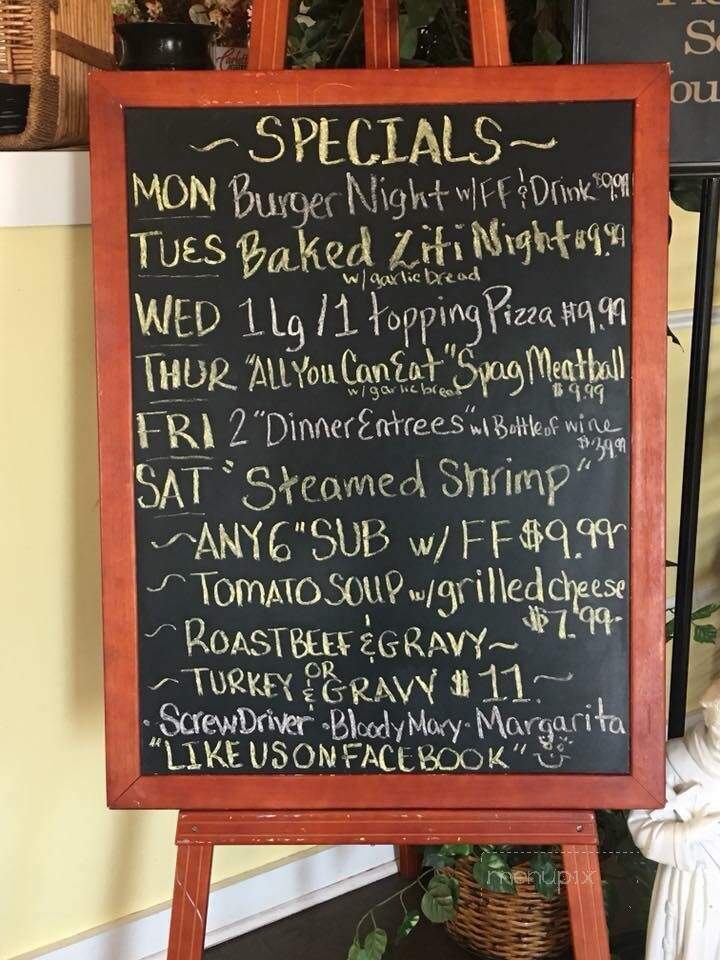 ~ SPECIALS ~
MON Burger Night w/FF & Drink $9.99
TUES Baked Ziti Night $9.99
w/garlic bread
WED 1 Lg / 1 topping Pizza $9.99
THUR "ALL You Can Eat" Spag Meatball
w/garlic bread $9.99
FRI 2 "Dinner Entrees" w/ Bottle of wine
$39.99
SAT "Steamed Shrimp"
~ ANY 6" SUB w/ FF $9.99~
~ TOMATO SOUP w/grilled cheese
$7.99-
~ ROAST BEEF & GRAVY~
OR
~ TURKEY & GRAVY $11.~
· ScrewDriver · Bloody Mary · Margarita
"LIKE US ON FACEBOOK"
menupix